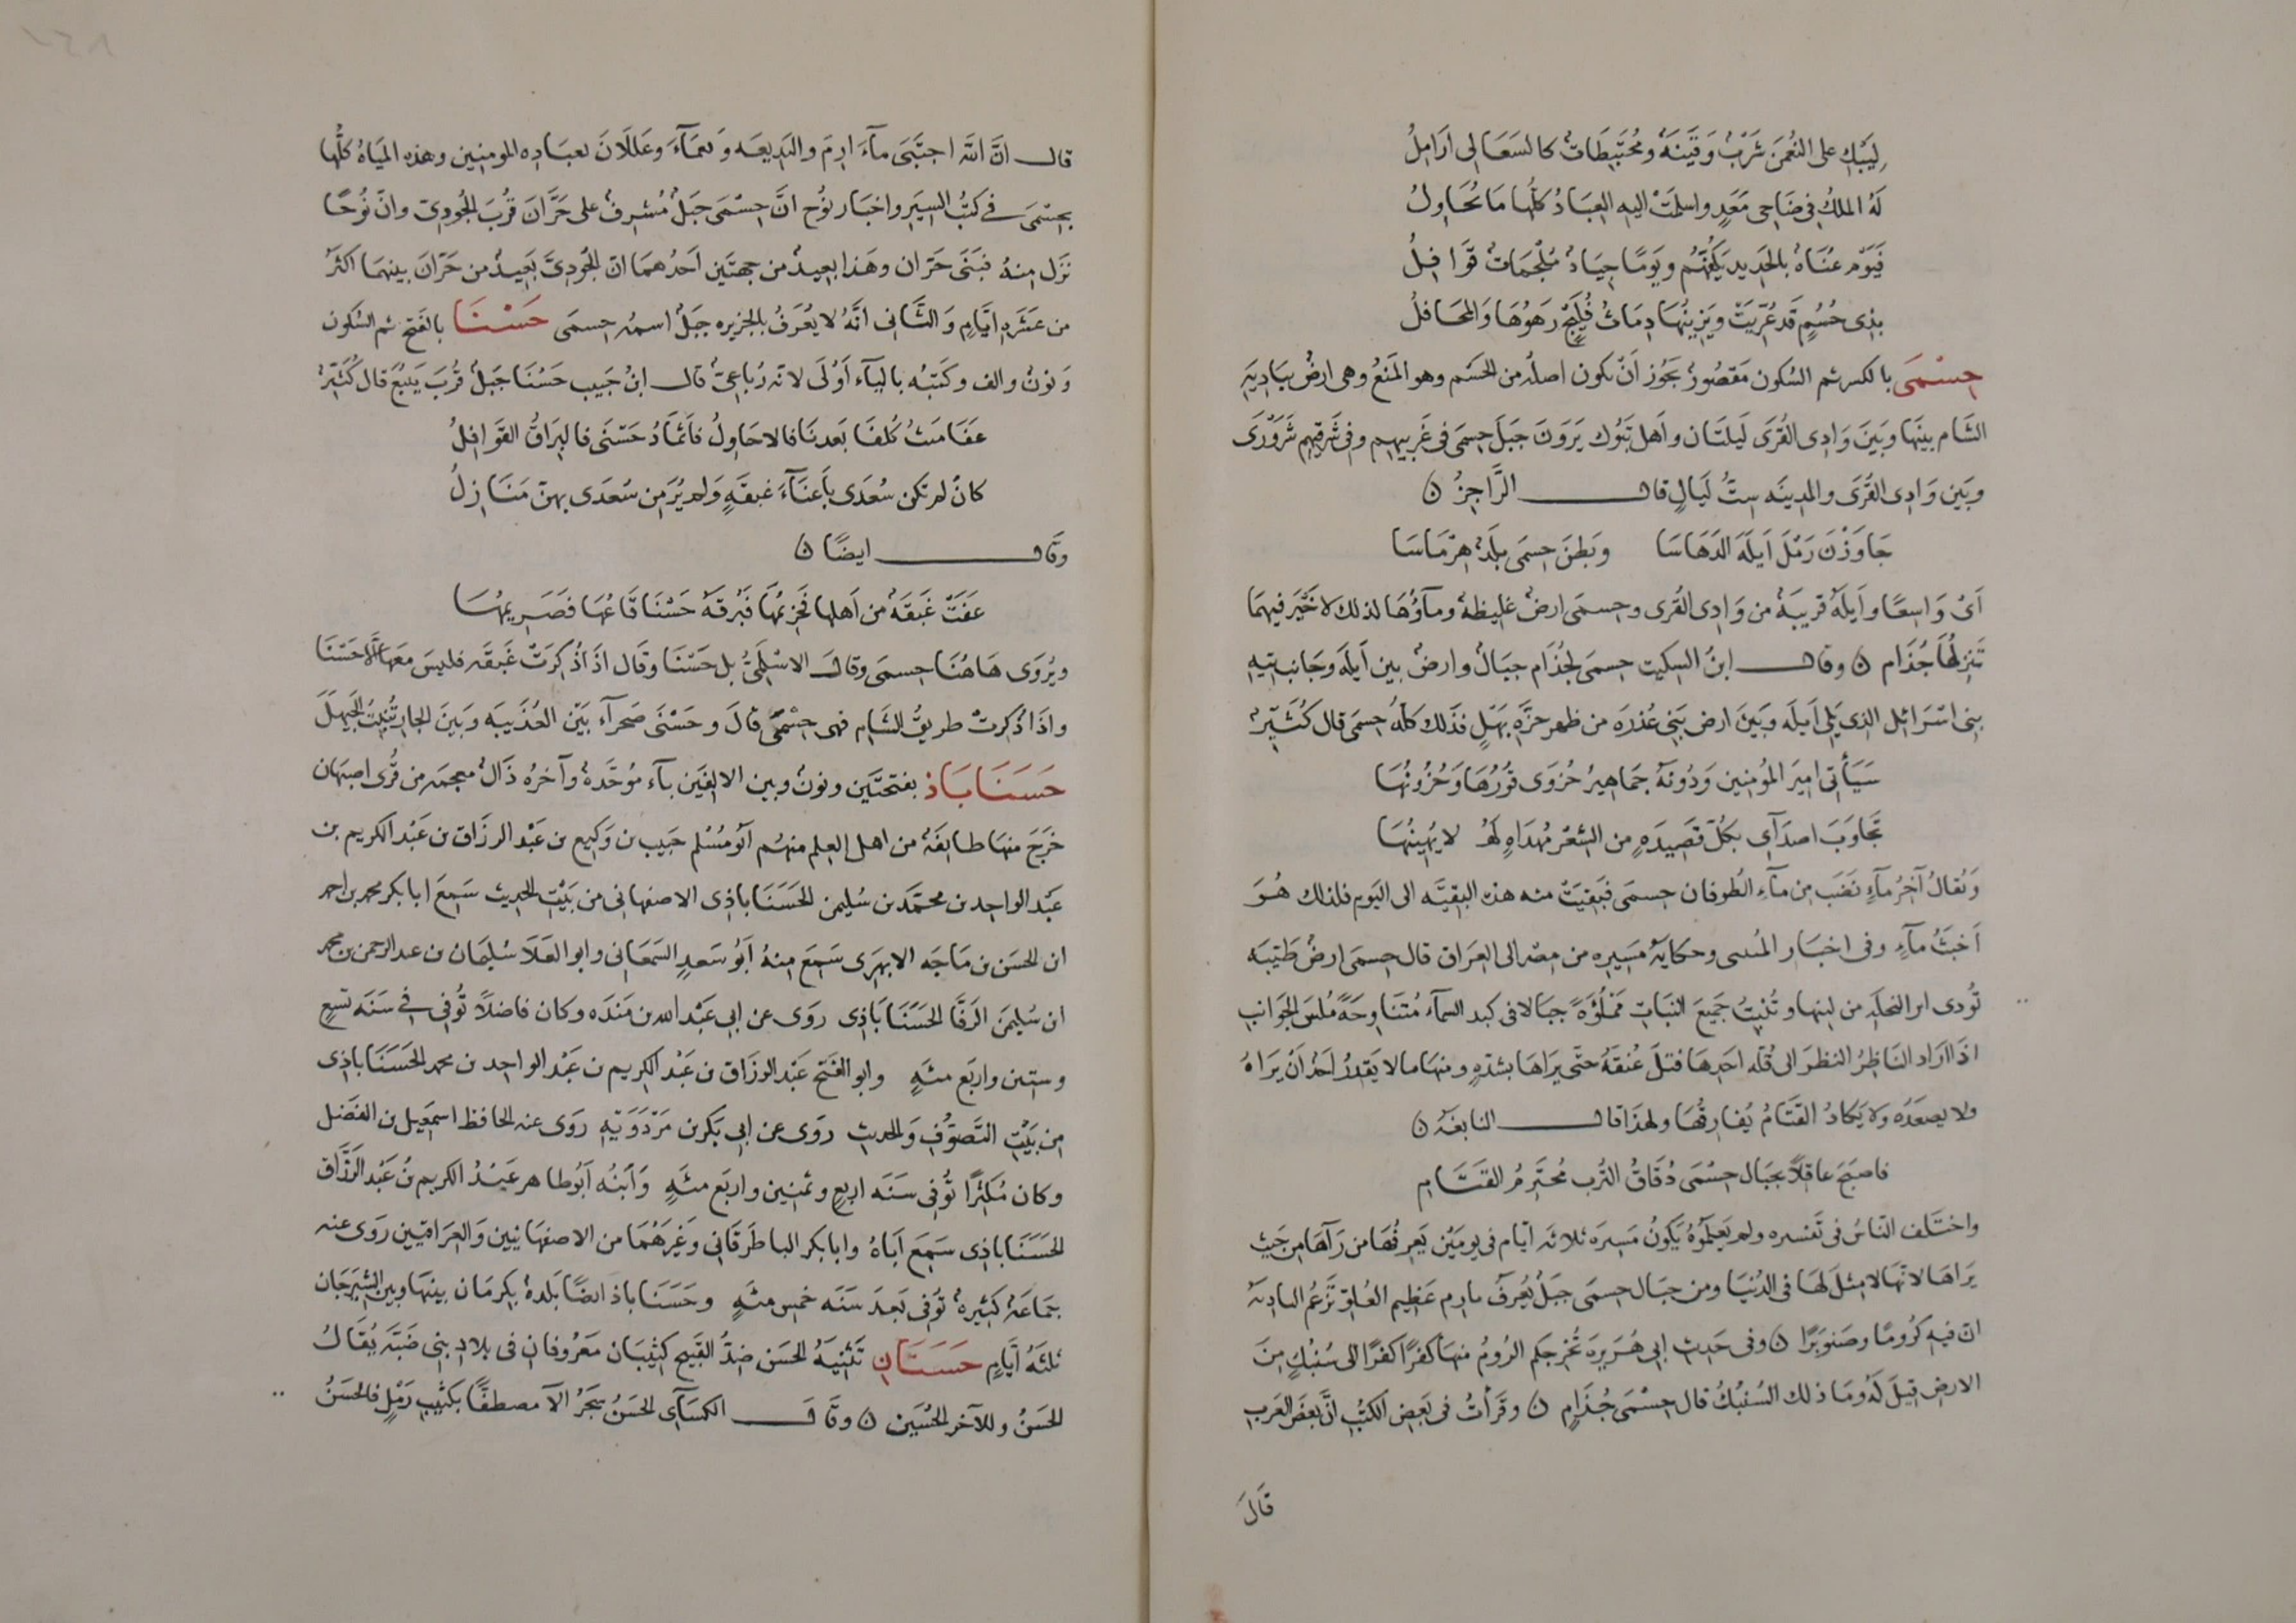 لِيَبكِ على النعُمنِ شَرْبٌ وَقَينَةٌ ومُختَبِطَاتٌ كالسَعَالى ارَامِلُ
لَهُ الملكُ فى ضَاحى مَعَدٍ واسلمَتْ اليهِ العِبَادُ كلُّها مَا يُحَاوِلُ
فَيَومٌ عُنَاةٌ بالحَديدِ يَكُفّهُم ويَومًا جِيَادٌ مُلْجَمَاتٌ قَوَافِلُ
بذِى حُسُمٍ قَد عُرِّيَتْ ويَزِينُهَا دِمَاثُ فُلَيجٍ رَهوُهَا وَالمحَافلُ
حِسْمَى بالكسر ثم السُكون مَقصُورٌ يجُوز اَنْ يكون اصلُه من الحَسَم وهو المَنعُ وهى ارضٌ ببَادِيَةِ
الشَام بينَها وبَينَ وَادِى القُرَى لَيلتَان واَهل تَبُوك يَرَونَ جَبَلَ حِسمَى فى غَربيهم وفى شَرقيهِم شَرَوْرَى
وبَين وَادِى القُرَى والمدِينَه سِتُّ لَيَالٍ قال الرَّاجِزُ ن
جَاوَزْنَ رَمْلَ اَيلَةَ الدَهَاسَا وبَطنَ حِسمَى بلَدًا هِرْمَاسَا
اَىْ وَاسِعًا واَيلَةُ قريبَةٌ من وَادِى القُرى وحِسمَى ارضٌ غليظةٌ ومآؤُهَا لذلك لا خَيرَ فيهمَا
تَنزِلُهَا جُذَام ن وقال ابنُ السكيت حِسمَى لجُذَام جبَالٌ وارضٌ بين اَيلَةَ وجَانب تيهِ
بنِى اسْرَائيل الذى يَلى اَيلَه وبَينَ ارض بَنِى عُذرَه من ظهرِ حَرَّةِ نهَيْلٍ فذَلك كلُّهُ حِسمَى قال كُثَيّرٌ
سَيَأتِى اميرَ المؤمنِين وَدُونَهُ جمَاهِيرُ حُزوَى قُورُهَا وَحُزُونُهَا
تَجَاوَبَ اصدَآى بكُلّ قَصِيدَةٍ من الشعْرِ مُهدَاةٍ لمن لا يُهِينُهَا
وَيُقالُ آخِرُ مآءٍ نَضَبَ من مآءِ الطُوفان حِسمَى فبَقِيَتْ منه هذهِ البقيَّه الى اليَوم فلذلك هُوَ
اَخبَثُ مآءٍ وفى اخبَار المُتنبى وحكايَةِ مَسِيرِه من مِصْر الى العِرَاق قال حِسمَى ارضٌ طَيّبَه
تُودى اثر النخلَة من لينها وتُنْبِتُ جَمِيعَ النبَاتِ مَملُوَّةٌ جبَالا فى كبد السمآء مُتنَاوِحَةً مُلسَ الجوَانب
اذَا ارَاد النَاظِرُ النظرَ الى قُلَّه احَدِهَا فتلَ عُنقَهُ حتَى يرَاهَا بشدّةٍ ومنهَا ما لا يَقدِرُ احَدٌ اَنْ يَرَاهُ
ولا يصعَدَه ولا يَكادُ القَتَامُ يُفَارِقُهَا ولهذَا قال النابغَهُ ن
فاصبَحَ عاقلًا بجبَال حِسْمَى دُقَاقُ التُرب مُحتَزِمُ القَتَامِ
واختَلف النّاسُ فى تفسيره ولم يَعلمُوهُ يَكونُ مَسِيرَةَ ثلاثَه ايّام فى يومَيْن يَعِرفُهَا من رَآهَا من حَيث
يَرَاهَا لانهَا لا مِثلَ لهَا فى الدُنيَا ومن جبَال حِسمَى جَبَلٌ يُعرَفُ بارِم عَظِيم العُلوّ تَزعُم البادِيَةُ
انّ فيهِ كرُومًا وصَنوبَرًا ن وفى حَديث ابى هُرَيرَةَ تُخرجكم الرُومُ منهَا كفرًا كفرًا الى سُنْبُكٍ مِنَ
الارضِ قِيلَ لَهُ ومَا ذلك السُنبُكُ قال حِسْمَى جُذَامٍ ن وقَرَأتُ فى بَعض الكتُبِ انَّ بعَضَ العَرب
قَالَ
قال انَّ اللهَ اجتَبَى مآءَ ارِمَ والبَدِيعَه وَنعمَآءَ وعَللَانَ لعبَادِه المومِنِين وهذهِ المِيَاهُ كلُّها
بحِسْمَى فى كتُبِ السِيَر واخبَار نوُح انَّ حِسْمَى جَبَلٌ مُشرِفٌ على حَرَّانَ قُربَ الجُودِىّ وانّ نُوحًا
نزَل مِنهُ فبَنَى حَرّان وهَذا بعيدٌ من جهتَين اَحدُهمَا انّ الجُودِىَّ بَعيدٌ من حَرّانَ بينهمَا اكثَرُ
من عَشَرةِ ايَّامٍ وَالثَانى انَّهُ لا يُعرَفُ بالجَزيره جَبَلٌ اسمهُ حِسمَى حَسْنَا بالفَتح ثم السُكون
وَنونٌ والف وكَتبُه باليآء اَوْلَى لانَه رُبَاعىٌ قال ابنُ حَبيب حَسْنَا جَبَلٌ قُربَ يَنبُعَ قال كُثَيّرٌ
عَفَا مَيثُ كُلفَا بَعدنَا فالاجَاولُ فاَثمَادُ حَسْنَى فالبِرَاقُ القَوَابِلُ
كانْ لم تكن سُعدَى باَعنَآءِ غَيقَةٍ وَلم يُرَ مِن سُعدَى بهنّ مَنَازِلُ
وَقال ايضًا ن
عَفَتْ غَيقَةٌ من اَهلهَا فجَزِيمُهَا فبُرقَةُ حَسْنَا قَاعُهَا فَصَرِيمُهَا
ويُروَى هَاهُنَا حِسمَى وقال الاسْلَمىُّ بل حَسْنَا وقَال اذَا ذُكِرَتْ غَيقَه فليسَ مَعهَا الّا حَسْنَا
واذَا ذُكِرتْ طريقُ الشَامِ فهى حِسْمَى قالَ وحَسْنَى صَحرآءُ بَيْن العُذَيبَه وبَينَ الجار تُنبِتُ الجَيهَلَ
حَسَنَابَاذ بفتحتَين ونونٌ وبين الالفَين بآء موُحَّدةٌ وآخرُه ذَالٌ معجمَه من قُرَى اصبَهان
خَرَجَ منهَا طايفَهٌ من اهل العِلم منهُم اَبُو مُسْلم حَبيب بن وَكِيع بن عَبْد الرزَاق بن عَبْد الكريم بن
عَبْد الواحِد بن محمَّد بن سُليمن الحَسَنَاباذِى الاصفهانى من بَيْتِ الحديث سَمِعَ ابا بكر محمد بن احمد
ابن الحسَن بن مَاجَه الابهَرِى سَمِعَ مِنهُ اَبُو سَعدٍ السَمعَانى وابو العَلَا سُليمَان بن عبد الرحمن بن محمد
ابن سُليمَن الرَفّا الحَسَنَابَاذِى روَى عن ابى عَبْد الله بن مَندَه وكان فاضلًا تُوفى فى سَنَه تسعٍ
وستين واربَع مئةٍ وابو الفَتح عَبْد الرزَاق بن عَبْد الكريم بن عَبْد الواحِد بن محمد الحَسَنَاباذِى
من بَيْتِ التَصوّفِ وَالحديث روَى عن ابى بَكر بن مَرْدَوَيْهِ روَى عنه الحافظ اسمعِيل بن الفَضل
وكان مُكثِرًا تُوفِى سَنَه اربعٍ وثمنِين واربَع مئةٍ وَابنُه اَبُو طاهر عَبْدُ الكريم بنُ عَبْد الرَزَّاق
الحَسَنَاباذِى سَمِعَ اَبَاهُ وابا بكر الباطَرقَانى وَغَيرَهُمَا من الاصفهَانيين وَالعِرَاقيين رَوى عنه
جمَاعَةٌ كثيرةٌ تُوفى بَعدَ سَنَه خمس مئةٍ وحَسَنَاباذ ايضًا بَلدةٌ بكِرمَان بينهَا وبين الشيرَجَان
ثلثَهُ اَيَّامٍ حَسَنَانِ تَثنيَهُ الحَسَن ضِدُّ القَبيحِ كثِيبَان مَعرُوفانِ فى بلادِ بنِى ضَبَّه يُقَالُ
الحَسَنُ وللآخر الحُسَين ن وقَال الكسَآئى الحَسَنُ شَجَرُ الآ مصطفًا بكَثيبِ رَمْلٍ فالحَسَنُ